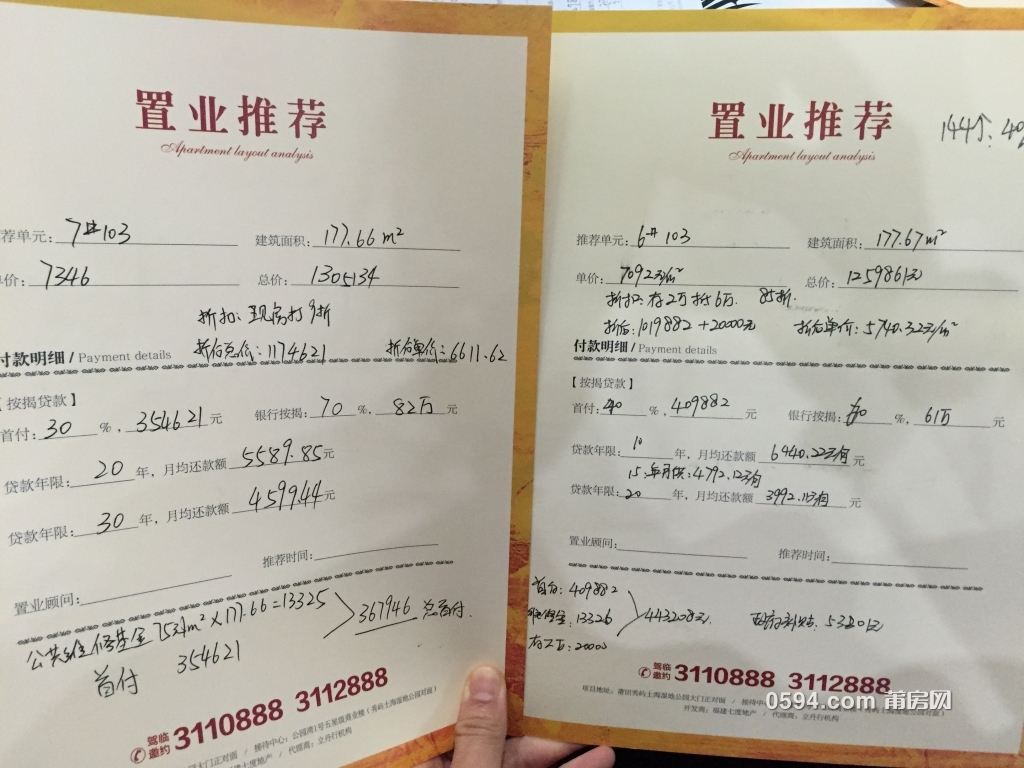 置业推荐
Apartment layout analysis
荐单元: 7#103 建筑面积: 177.66 m²
价: 7346 总价: 1305134
折扣: 现房打9折
折后总价: 1174621 折后单价: 6611.62
付款明细 / Payment details
【按揭贷款】
首付: 30 %, 354621 元 银行按揭: 70 %, 82万 元
贷款年限: 20 年, 月均还款额 5589.85 元
贷款年限: 30 年, 月均还款额 4599.44 元
置业顾问: 推荐时间:
公共维修基金 75元/m² × 177.66 = 13325
首付 354621
367946 总首付.
驾临邀约 3110888 3112888
大门正对面 / 接待中心: 公园湾1号五星级商业楼 (秀屿土海湿地公园对面)
七度地产 / 代理商: 立丹行机构
置业推荐
Apartment layout analysis
144个: 40
推荐单元: 6#103 建筑面积: 177.67m²
单价: 7092元/m² 总价: 1259861元
折扣: 存2万抵6万. 85折.
折后: 1019882 + 20000元 折后单价: 5740.32元/m²
付款明细 / Payment details
【按揭贷款】
首付: 40 %, 409882 元 银行按揭: 60 %, 61万 元
贷款年限: 10 年, 月均还款额 6440.22元/月 元
15年月供: 4792.12元/月
贷款年限: 20 年, 月均还款额 3992.11元/月 元
置业顾问: 推荐时间:
首付: 409882
13326
存2万: 20000
443208元 政府补贴: 5320元
驾临邀约 3110888 3112888
项目地址: 莆田秀屿土海湿地公园大门正对面 / 接待中
秀屿土海湿地公园对面)
开发商: 福建七度地产 / 代理商: 立丹行机构
0594.com 莆房网